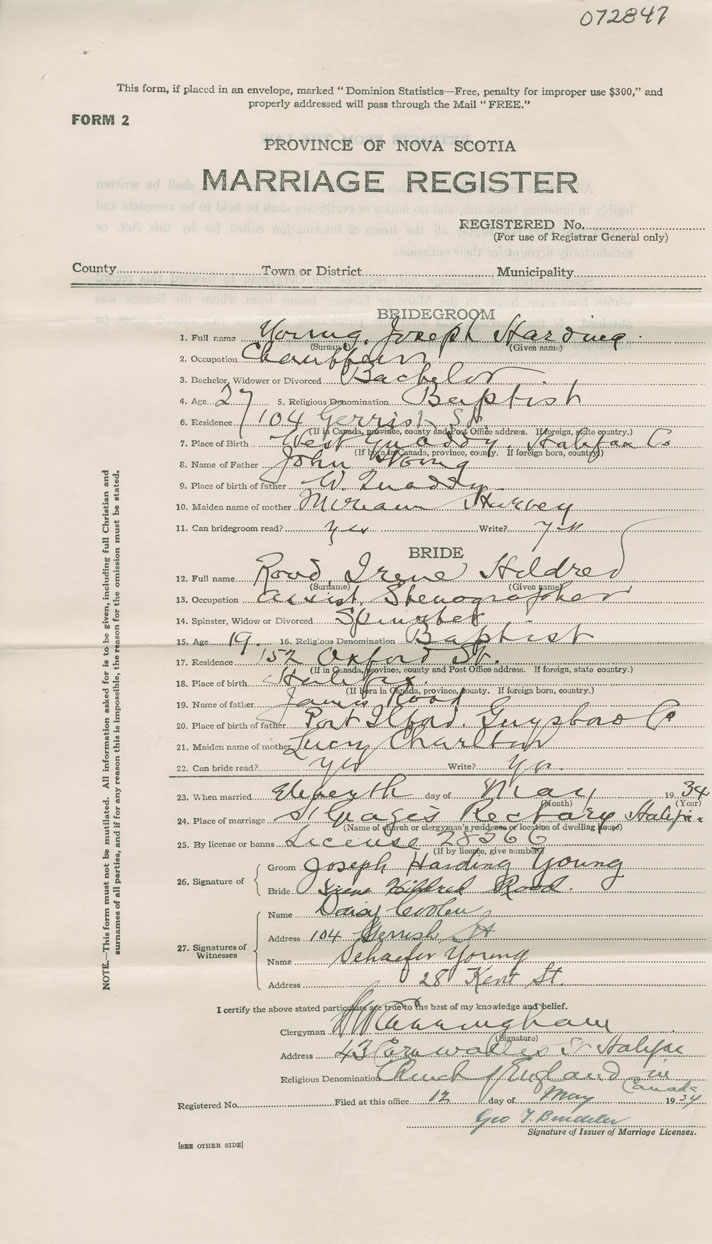 072847
This form, if placed in an envelope, marked "Dominion Statistics—Free, penalty for improper use $300," and
properly addressed will pass through the Mail "FREE."
FORM 2
PROVINCE OF NOVA SCOTIA
MARRIAGE REGISTER
REGISTERED No.
(For use of Registrar General only)
County Town or District Municipality
BRIDEGROOM
1. Full name Young, Joseph Harding.
(Surname) (Given name)
2. Occupation Chauffeur
3. Bachelor, Widower or Divorced Bachelor
4. Age 27 5. Religious Denomination Baptist
6. Residence 104 Gerrish St
(If in Canada, province, county and Post Office address. If foreign, state country.)
7. Place of Birth West Quoddy, Halifax Co
(If born in Canada, province, county. If foreign born, country.)
8. Name of Father John Young
9. Place of birth of father W. Quoddy
10. Maiden name of mother Miriam Harvey
11. Can bridegroom read? Yes Write? Yes
BRIDE
12. Full name Rood, Irene Hildred
(Surname) (Given name)
13. Occupation assist. Stenographer
14. Spinster, Widow or Divorced Spinster
15. Age 19. 16. Religious Denomination Baptist
17. Residence 152 Oxford St.
(If in Canada, province, county and Post Office address. If foreign, state country.)
18. Place of birth Halifax.
(If born in Canada, province, county. If foreign born, country.)
19. Name of father James Rood
20. Place of birth of father Port Ilford, Guysboro Co
21. Maiden name of mother Lucy Charlton
22. Can bride read? Yes Write? Yes
23. When married Eleventh day of May 1934
(Month) (Year)
24. Place of marriage St George's Rectory Halifax
(Name of church or clergyman's residence or location of dwelling house)
25. By license or banns License 28566
(If by license, give number)
26. Signature of
Groom Joseph Harding Young
Bride Irene Hildred Rood.
27. Signatures of Witnesses
Name Daisy
Address 104 Gerrish St
Name Schaefer Young
Address 28 Kent St.
I certify the above stated particulars are true to the best of my knowledge and belief.
Clergyman Cunningham
(Signature)
Address 43 Cornwallis St Halifax
Religious Denomination Church of England in Canada
Registered No. Filed at this office 12 day of May 1934
Geo T.
Signature of Issuer of Marriage Licenses.
[SEE OTHER SIDE]
NOTE.—This form must not be mutilated. All information asked for is to be given, including full Christian and
surnames of all parties, and if for any reason this is impossible, the reason for the omission must be stated.